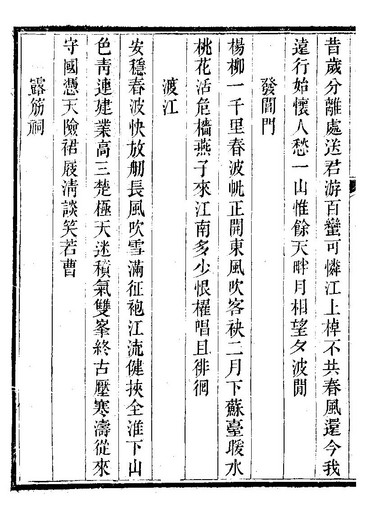 昔歲分離處送君游百蠻可憐江上棹不共春風還今我
遠行始懷人愁一山惟餘天畔月相望夕波間
發閶門
楊柳一千里春波帆正開東風吹客袂二月下蘇臺暖水
桃花活危檣燕子來江南多少恨櫂唱且徘徊
渡江
安穩春波快放舠長風吹雪滿征袍江流健挾全淮下山
色靑連建業高三楚極天迷積氣雙峯終古壓寒濤從來
守國憑天險裙屐清談笑若曹
露筋祠